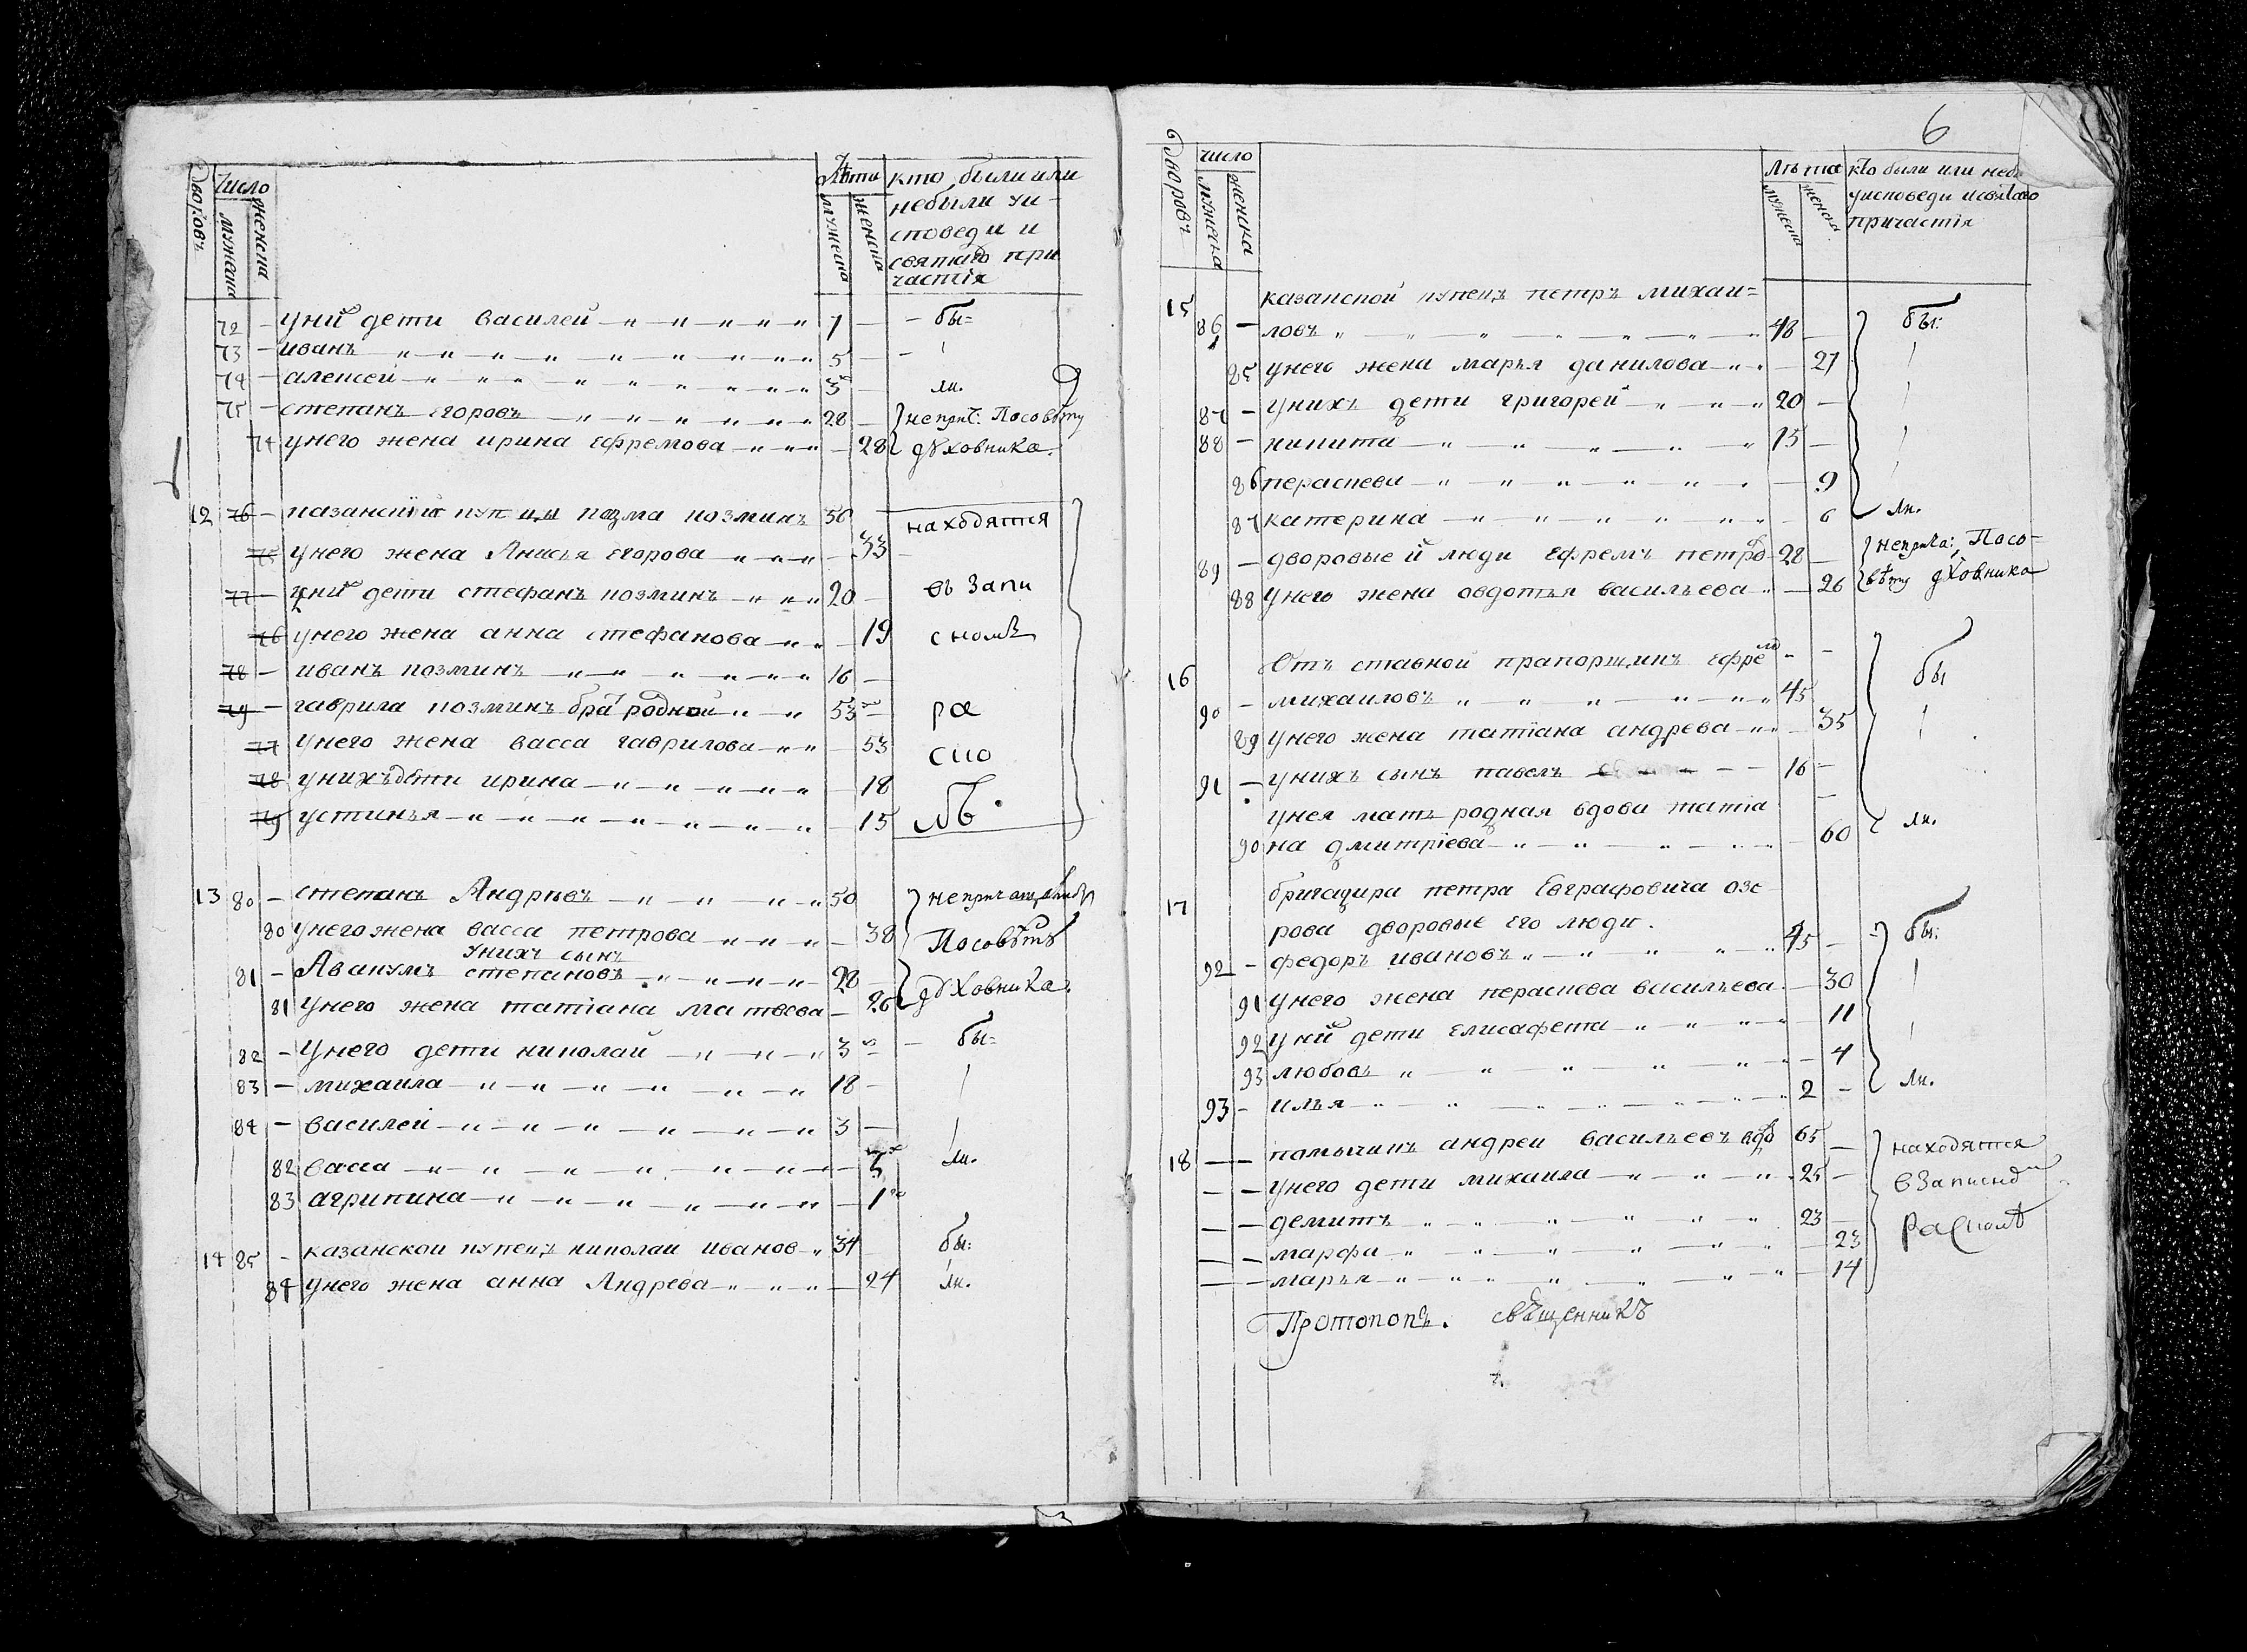 дворовъ число мужеска женска Лѣта мужеска женска кто были или
небыли уи
споведи и
святаго при
частія
72 — уних дети василей 7 — бы=
73 — иванъ 5 —
74 — алексей 3 — ли.
75 — степанъ егоровъ 28 — неприч: Посовѣту
74 унего жена ирина ефремова — 28 дховника.
12 76 — казанский купецъ козма козминъ 56 находятся
75 унего жена Анисья егорова — 33
77 — уних дети стефанъ козминъ 20 — въ Запи
76 унего жена анна стефанова — 19
78 — иванъ козминъ 16 —
79 — гаврила козминъ брат родной 53 — ра
77 унего жена васса гаврилова — 53 ско
78 унихъ дети ирина — 18
79 устинья — 15 лѣ
13 80 — степанъ Андрѣевъ 50
80 унего жена васса петрова — 38 Посовѣту
унихъ сынъ
81 — Авакумъ степановъ 28 —
81 унего жена татіана матвева — 26 дховника.
82 — Унего дети николай 3 — бы=
83 — михаила 18 —
84 — василей 3 —
82 васса — 5 ли.
83 агрипина — 1
14 85 — казанской купецъ николай иванов 34 бы:
84 унего жена анна Андрева — 24 ли.
6
дворовъ число мужеска женска Лѣта мужеска женска кто были или небы
уисповеди исвятаго
причастія
15 казанской купецъ петръ михаи=
86 — ловъ 48 — бы:
85 унего жена марья данилова — 27
87 — унихъ дети григорей 20 —
88 — никита 15 —
86 параскева — 9
87 катерина — 6 ли.
89 — дворовые й люди ефремъ петро 28 — неприча: Посо-
88 Унего жена овдотья васильева — 26 вѣту дховника
16 Отъ ставной прапорщикъ ефрем
90 — михаиловъ 45 бы
89 унего жена татіана андрева — 35
91 — унихъ сынъ павелъ 16 —
унея мать родная вдова татіа
90 на дмитріева — 60 ли.
17 бригадира петра Евграфовича озе
рова дворовые его люди.
92 — федоръ ивановъ 45 — бы:
91 унего жена пераскева васильева — 30
92 уних дети елисафета — 11
93 любовь — 4
93 — илья 2 — ли.
18 — — андреи васильевъ вдо 65 — находятся
— — унего дети михаила 25 — взаписнд
— — демитъ 23 — Расколѣ
— — марфа — 23
— — марья — 14
Протопопъ. свѣщенникъ